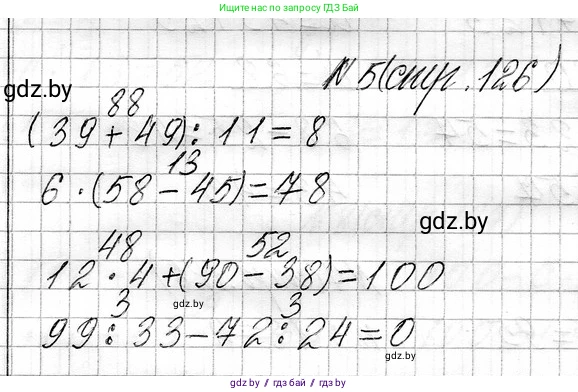 Ищите нас по запросу ГДЗ БАЙ
gdz.by
№ 5 (стр. 126)
88
(39 + 49) : 11 = 8
13
6 · (58 - 45) = 78
gdz.by
48 52
12 · 4 + (90 - 38) = 100
gdz.by
3 3
99 : 33 - 72 : 24 = 0
gdz.by
gdz.by / гдз бай / гдз.бел